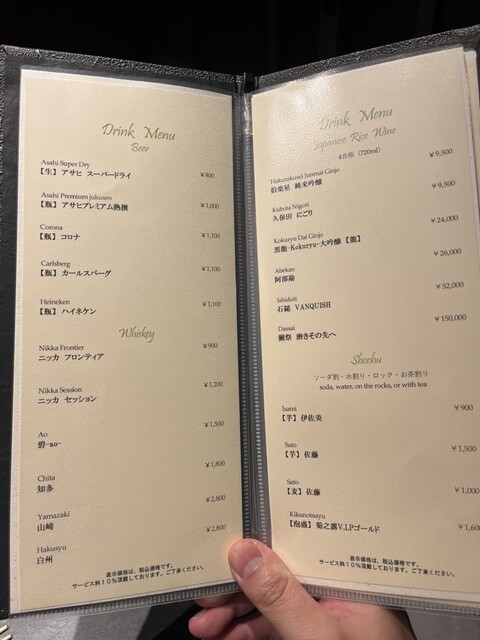 Drink Menu
Beer
Asahi Super Dry
【生】アサヒ スーパードライ ¥800
Asahi Premium jukusen
【瓶】アサヒプレミアム熟撰 ¥1,000
Corona
【瓶】コロナ ¥1,100
Carlsberg
【瓶】カールスバーグ ¥1,100
Heineken
【瓶】ハイネケン ¥1,100
Whiskey
Nikka Frontier
ニッカ フロンティア ¥900
Nikka Session
ニッカ セッション ¥1,200
Ao
碧-ao- ¥1,500
Chita
知多 ¥1,800
Yamazaki
山崎 ¥2,800
Hakusyu
白州 ¥2,800
表示価格は、税込価格です。
サービス料10%頂戴しております。ご了承ください。
Drink Menu
Japanese Rice Wine
4合瓶（720ml）
Hakurakusei Junmai Ginjo
伯楽星 純米吟醸 ¥9,500
Kubota Nigori
久保田 にごり ¥9,500
Kokuryu Dai Ginjo
黒龍-Kokuryu-大吟醸【龍】 ¥24,000
Abekan
阿部勘 ¥26,000
Ishiduti
石鎚 VANQUISH ¥52,000
Dassai
獺祭 磨きその先へ ¥150,000
Shochu
ソーダ割・水割り・ロック・お茶割り
soda, water, on the rocks, or with tea
Isami
【芋】伊佐美 ¥900
Sato
【芋】佐藤 ¥1,500
Sato
【麦】佐藤 ¥1,000
Kikunotsuyu
【泡盛】菊之露V.I.Pゴールド ¥1,600
表示価格は、税込価格です。
サービス料10%頂戴しております。ご了承ください。